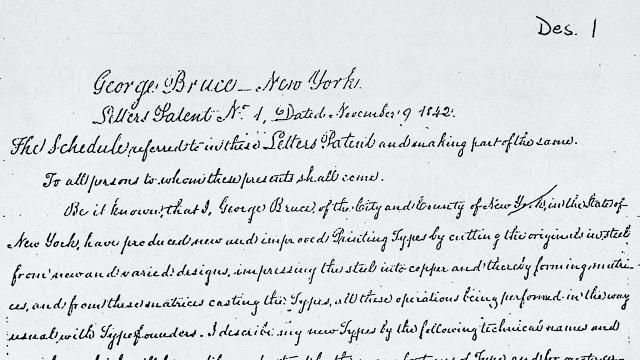 Des. 1
George Bruce — New York.
Letters Patent No. 1, Dated November 9 1842.
The Schedule referred to in these Letters Patent and making part of the same.
To all persons to whom these presents shall come.
Be it known, that I, George Bruce, of the City and County of New York, in the State of
New York, have produced new and improved Printing Types by cutting the originals in steel
from new and varied designs, impressing the steel into copper and thereby forming matri-
ces, and from these matrices casting the Types, all these operations being performed in the way
usual with Typefounders. I describe my new Types by the following technical names and